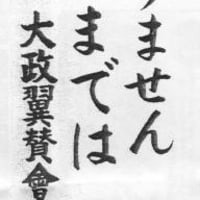 ません
までは
大政翼賛會